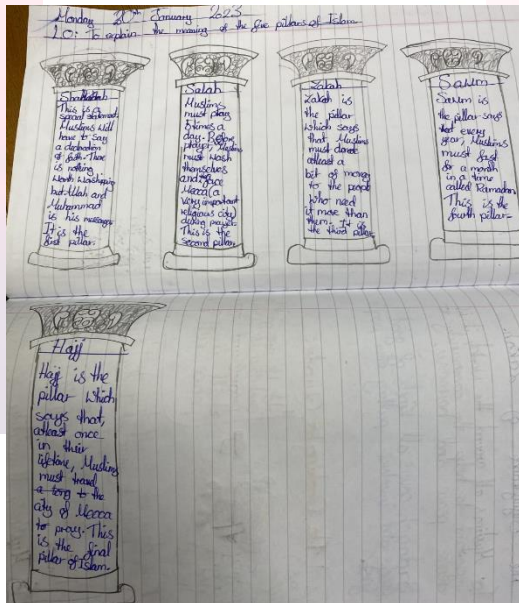 Monday 30th January 2023
LO: To explain the meaning of the five pillars of Islam.
Shahadah
This is a
special statement.
Muslims will
have to say
a declaration
of faith. There
is nothing
worth worshipping
but Allah and
Muhammad
is his messenger.
It is the
first pillar.
Salah
Muslims
must pray
5 times a
day. Before
prayer, Muslims
must wash
themselves
and face
Mecca (a
very important
religious city)
during prayer.
This is the
second pillar.
Zakah
Zakah is
the pillar
which says
that Muslims
must donate
atleast a
bit of money
to the people
who need
it more than
them. It is
the third pillar.
Sawm
Sawm is
the pillar says
that every
year, Muslims
must fast
for a month
in a time
called Ramadan.
This is the
fourth pillar.
Hajj
Hajj is the
pillar which
says that,
atleast once
in their
lifetime, Muslims
must travel
a long to the
city of Mecca
to pray. This
is the final
pillar of Islam.